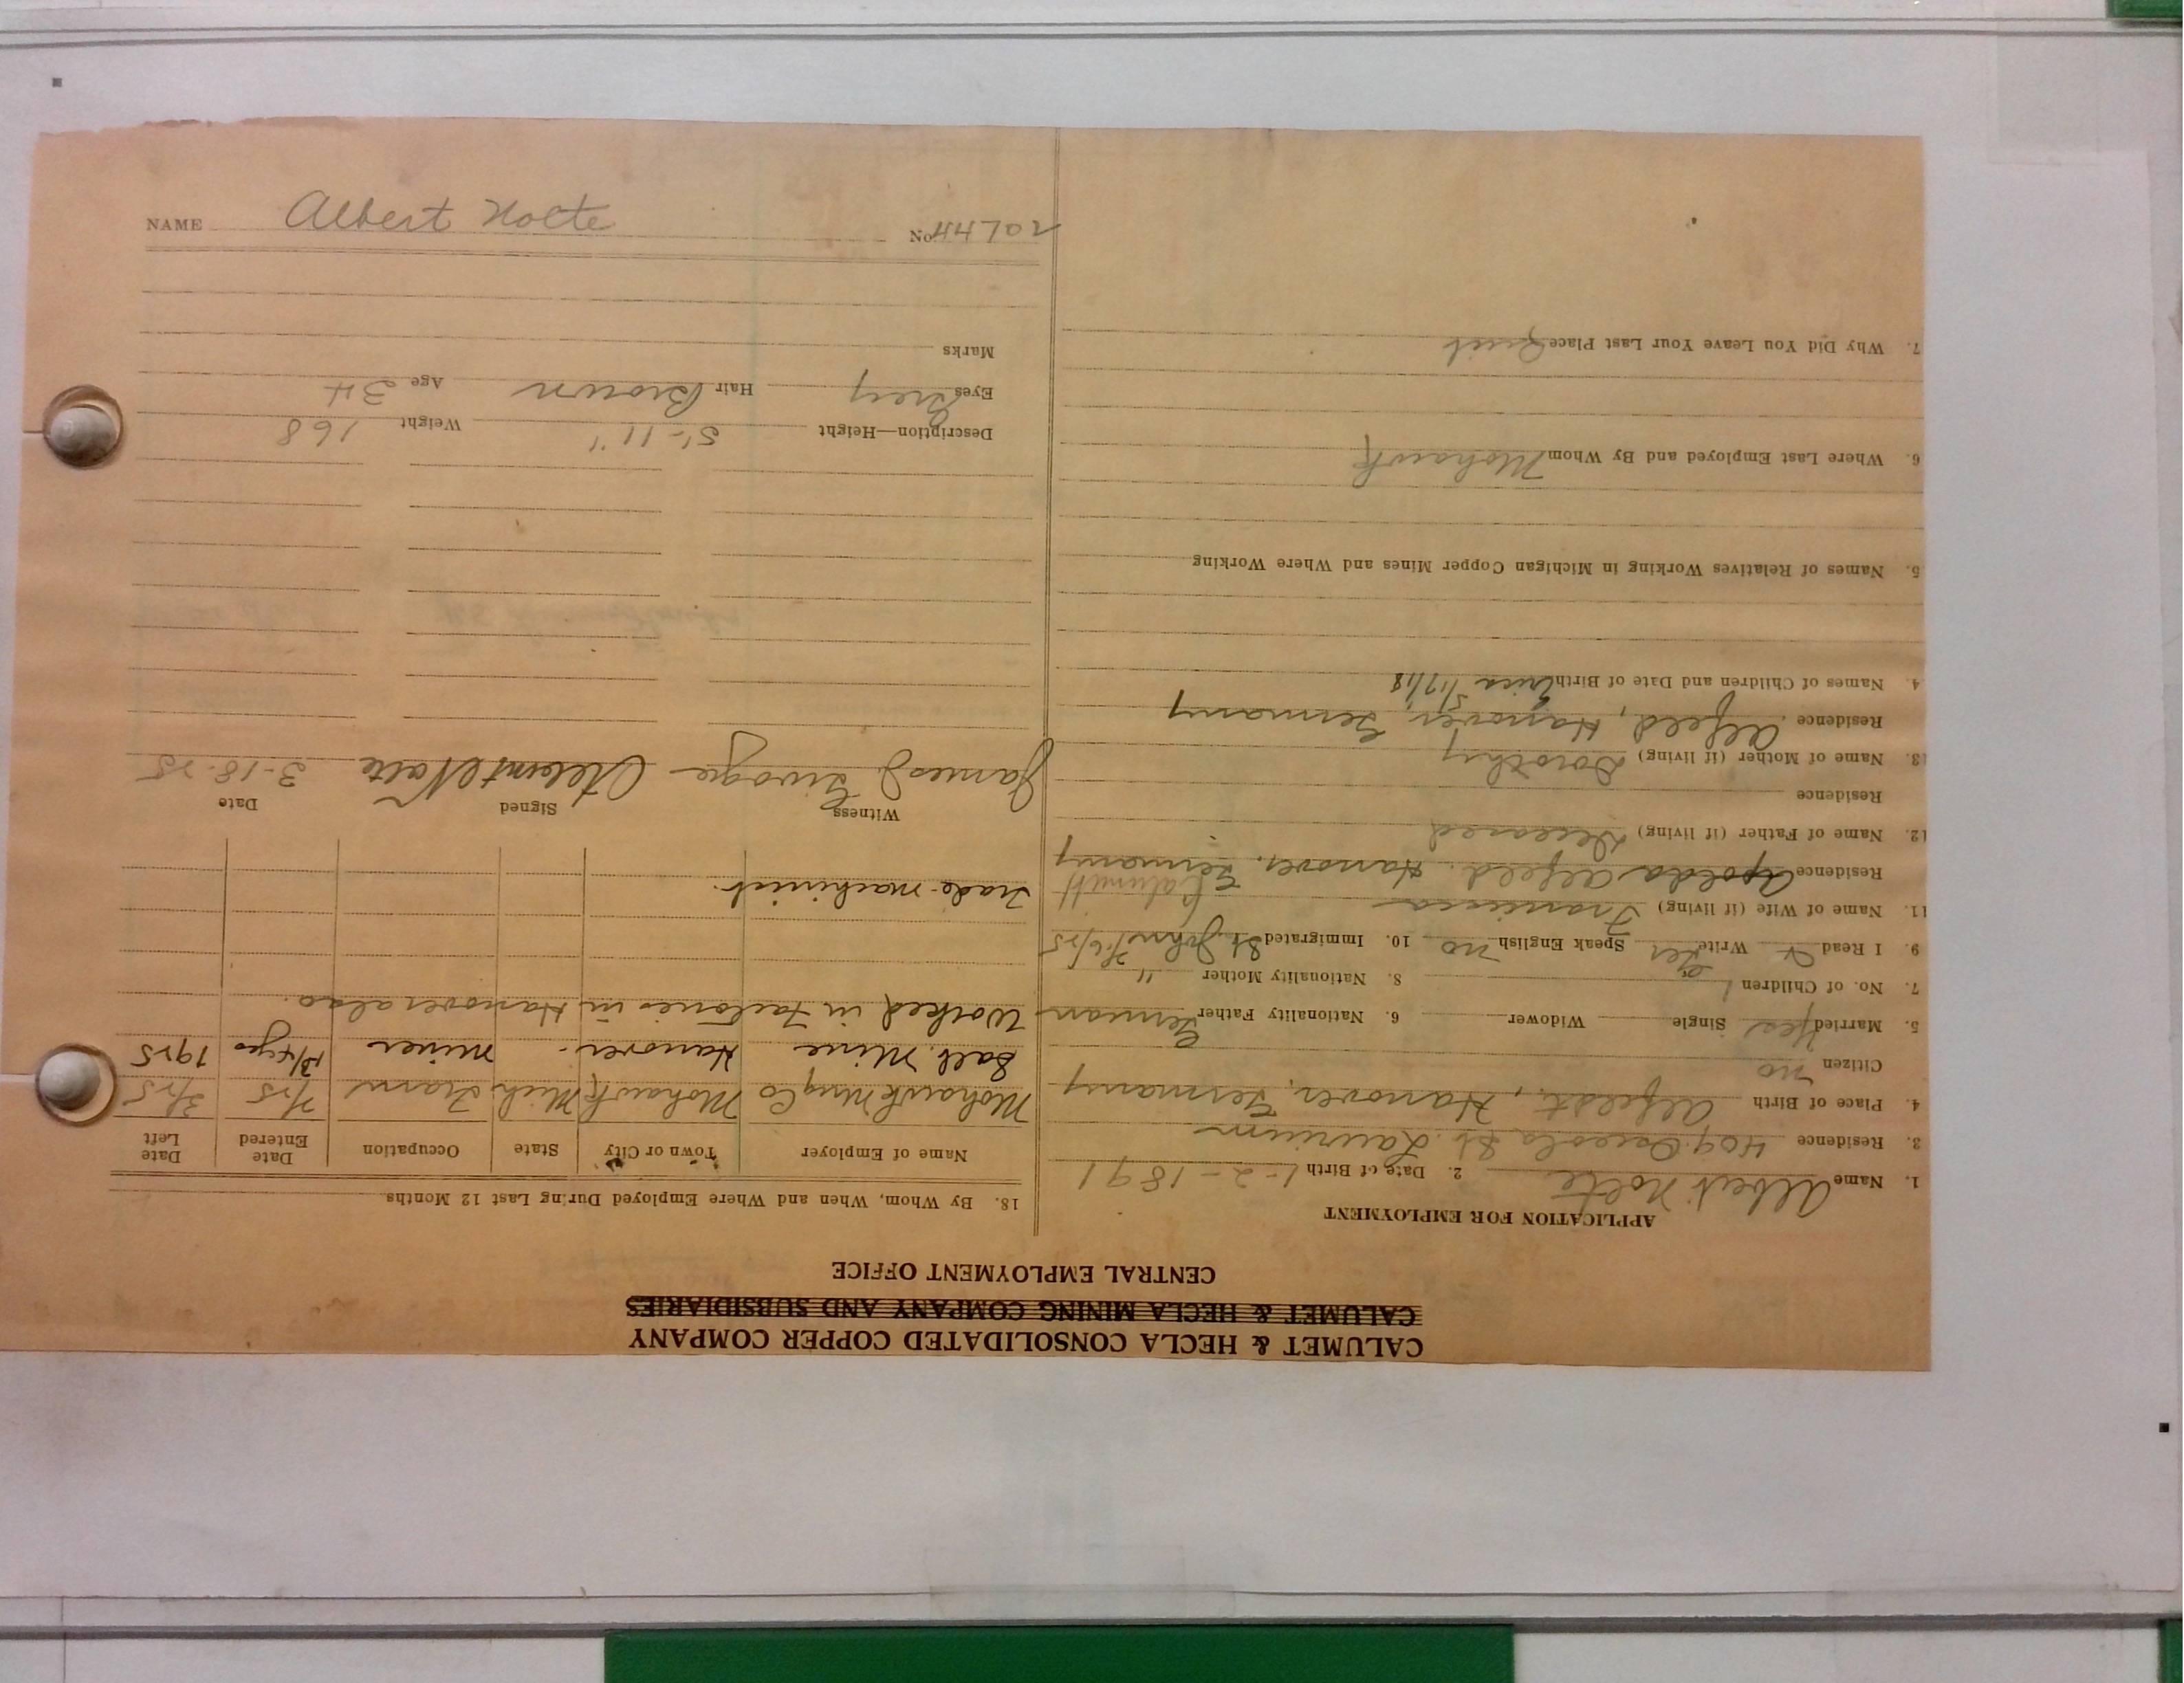 CALUMET & HECLA CONSOLIDATED COPPER COMPANY
CALUMET & HECLA MINING COMPANY AND SUBSIDIARIES
CENTRAL EMPLOYMENT OFFICE
APPLICATION FOR EMPLOYMENT
1. Name Albert Nolte 2. Date of Birth 1-2-1891
3. Residence 409 Osceola St. Laurium
4. Place of Birth Alfeldt, Hanover, Germany
Citizen no
5. Married Yes Single Widower 6. Nationality Father German
7. No. of Children 1 8. Nationality Mother "
9. I Read Write Ger Speak English no 10. Immigrated St. John
11. Name of Wife (if living) Calumet
Residence Apolda Alfeld. Hanover, Germany
12. Name of Father (if living) Deceased
Residence
13. Name of Mother (if living) Dorothy
Residence Alfeld, Hanover, Germany
4. Names of Children and Date of Birth 5/17/18
5. Names of Relatives Working in Michigan Copper Mines and Where Working
6. Where Last Employed and By Whom Mohawk
7. Why Did You Leave Your Last Place Quit
18. By Whom, When and Where Employed During Last 12 Months
Name of Employer Town or City State Occupation Date Entered Date Left
Mohawk Mng Co Mohawk Mich Tram 2/25 3/25
Salt Mine Hanover - miner 1925
Worked in Factories in Hanover also.
Trade-machinist.
Witness Signed Date
James J. Albert Nolte 3-18-25
Description—Height 5'-11" Weight 168
Eyes Grey Hair Brown Age 34
Marks
NAME Albert Nolte No 44702